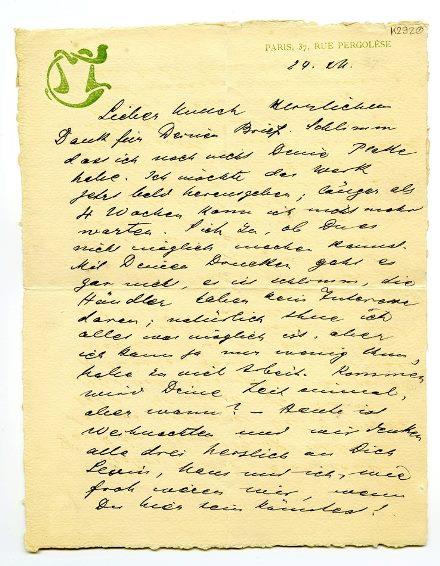 K2920
PARIS, 37, RUE PERGOLÈSE
24. XII.
Lieber Munch Herzlichen
Dank für Deinen Brief. Schlimm
dass ich noch nicht Deine Platte
habe. Ich möchte das Werk
jetzt bald herausgeben; länger als
4 Wochen kann ich nicht mehr
warten. Sieh zu, ob Du es
nicht möglich machen kannst.
Mit Deinen Drucken geht es
gar nicht, es ist schlimm, die
Händler haben kein Interesse
daran; natürlich thue ich
alles was möglich ist, aber
ich kann ja nur wenig thun,
habe zu viel Arbeit. Kommen
wird Deine Zeit einmal,
aber wann? – Heute ist
Weihnachten und wir denken
alle drei herzlich an Dich
Hans und ich, wie
froh wären wir, wenn
Du hier sein könntest!